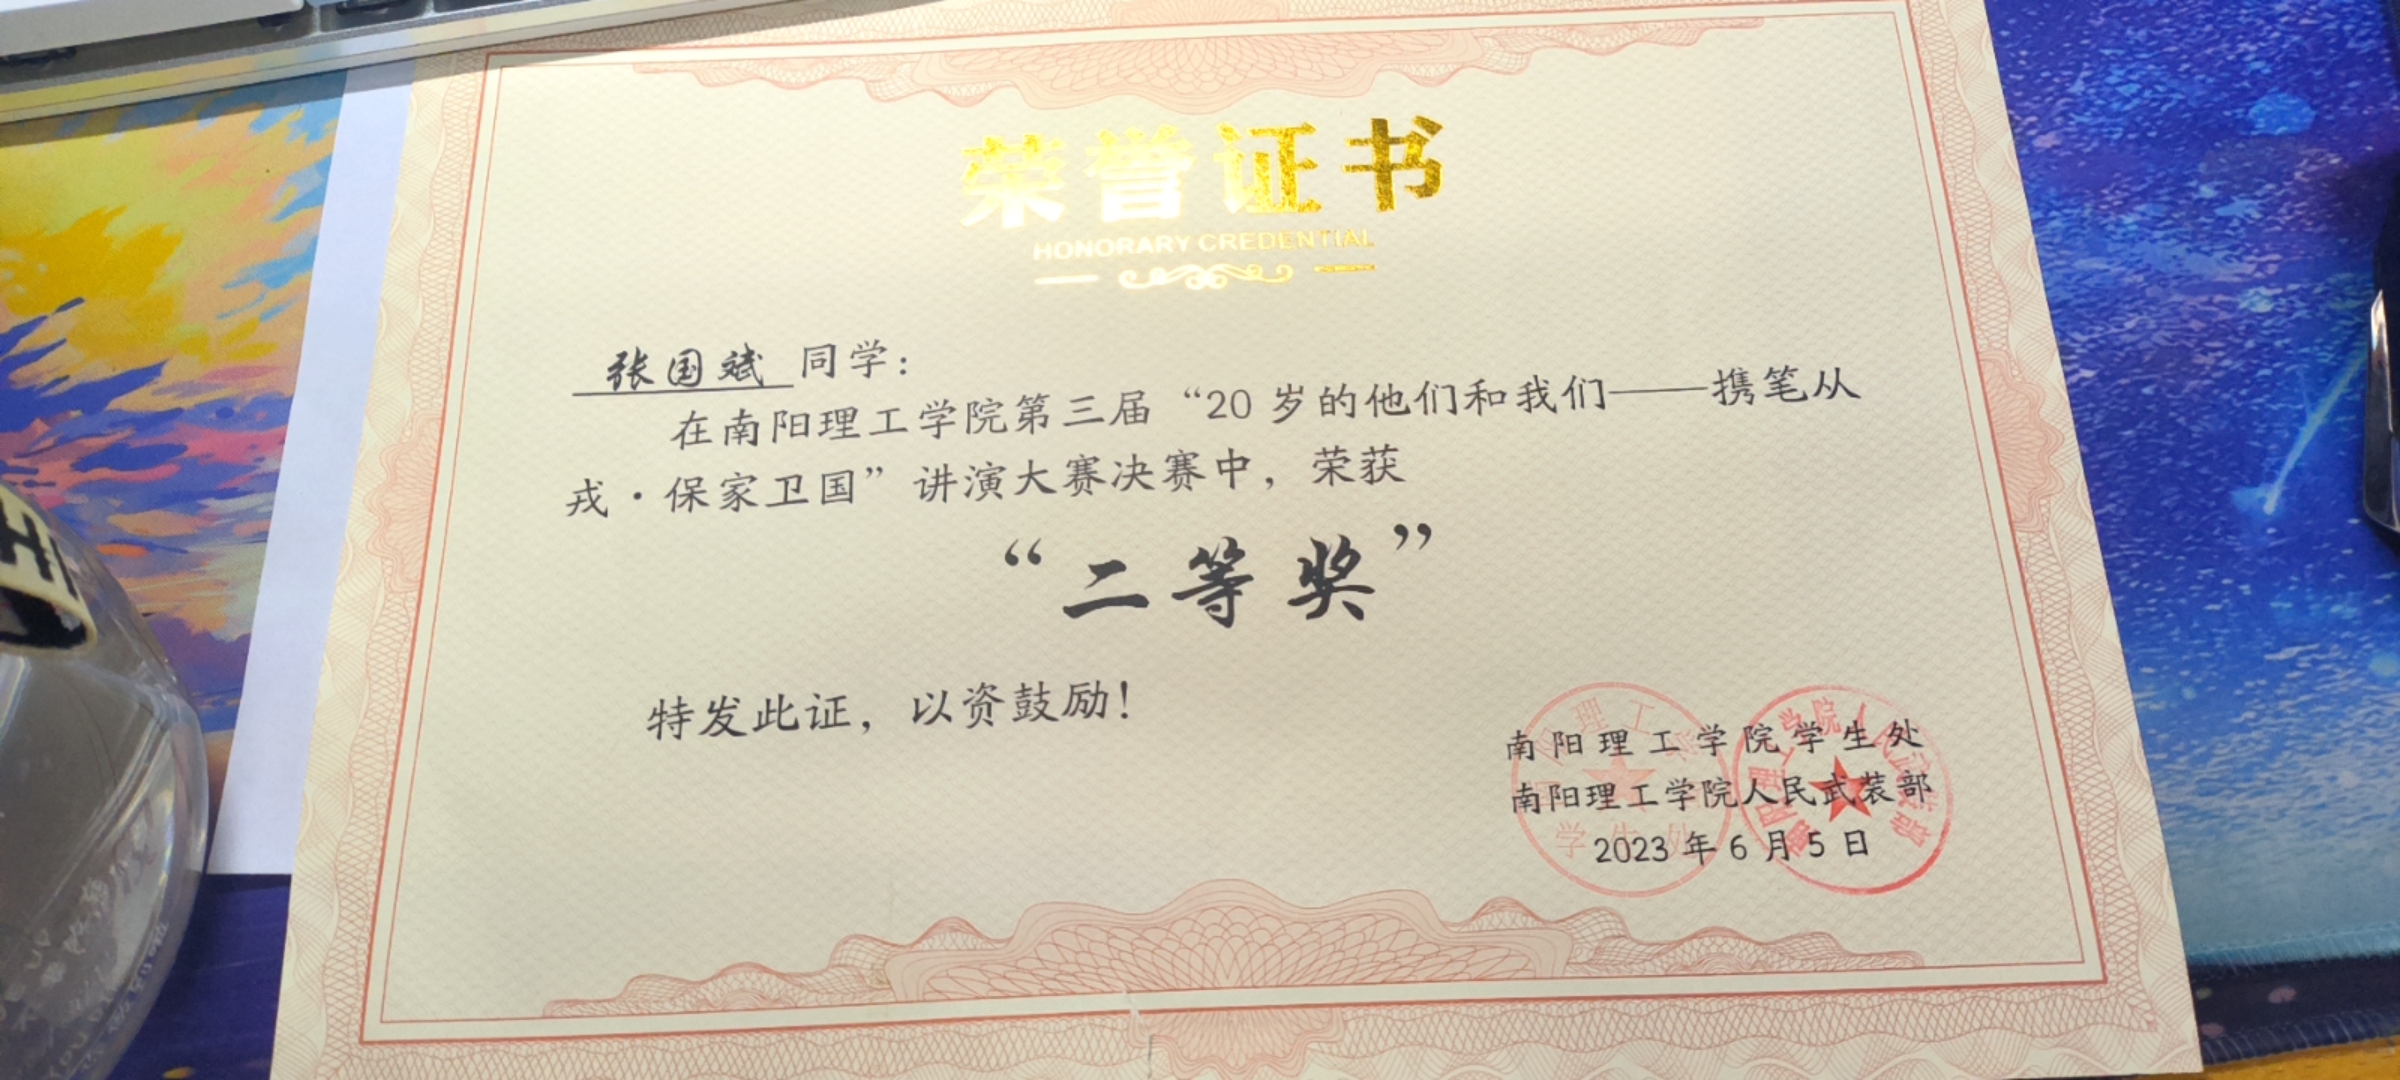 荣誉证书
HONORARY CREDENTIAL
张国斌 同学：
在南阳理工学院第三届“20 岁的他们和我们——携笔从
戎·保家卫国”讲演大赛决赛中，荣获
“二等奖”
特发此证，以资鼓励！
南阳理工学院学生处
南阳理工学院人民武装部
2023 年 6 月 5 日